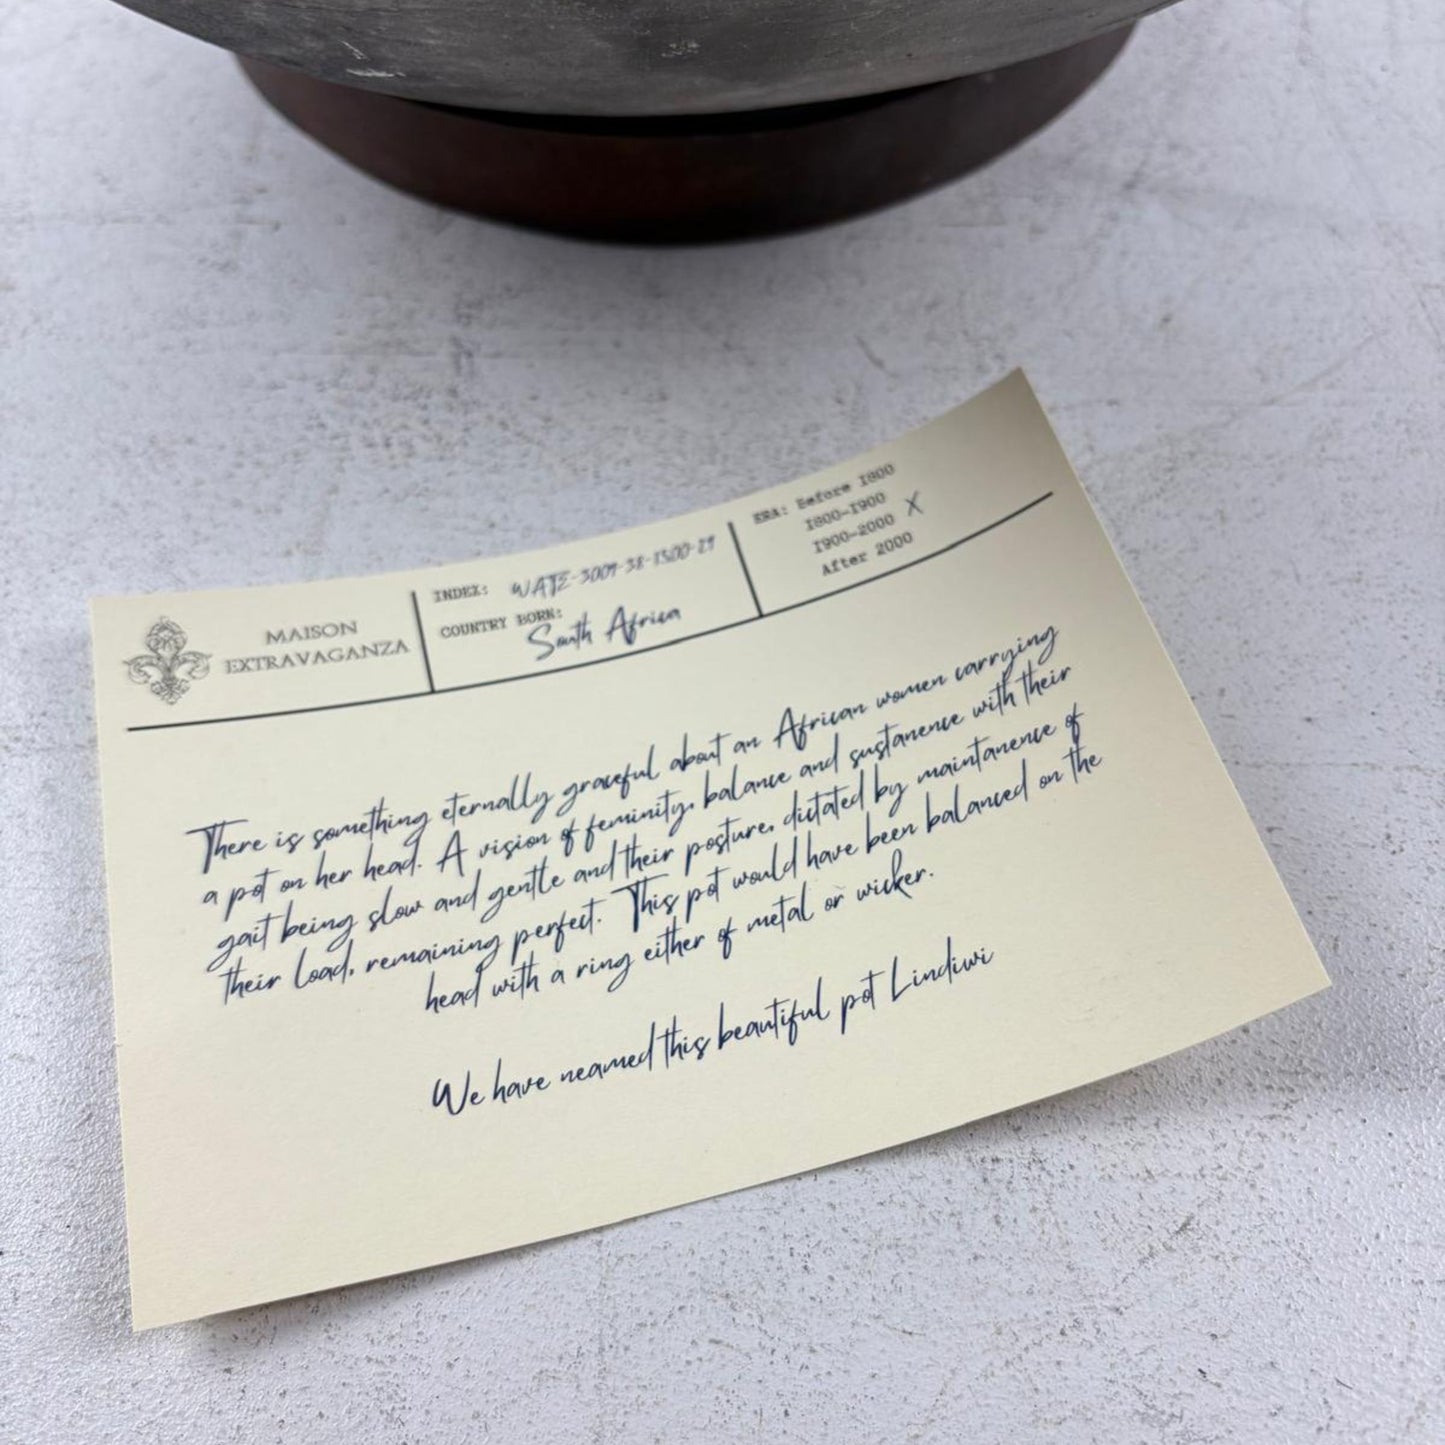 MAISON
EXTRAVAGANZA
INDEX:
COUNTRY BORN:
South Africa
ERA: Before 1800
1800-1900
1900-2000 X
After 2000
There is something eternally graceful about an African women carrying
a pot on her head. A vision of feminity, balance and sustanence with their
gait being slow and gentle and their posture, dictated by maintanence of
their load, remaining perfect. This pot would have been balanced on the
head with a ring either of metal or wicker.
We have neamed this beautiful pot Lindiwi